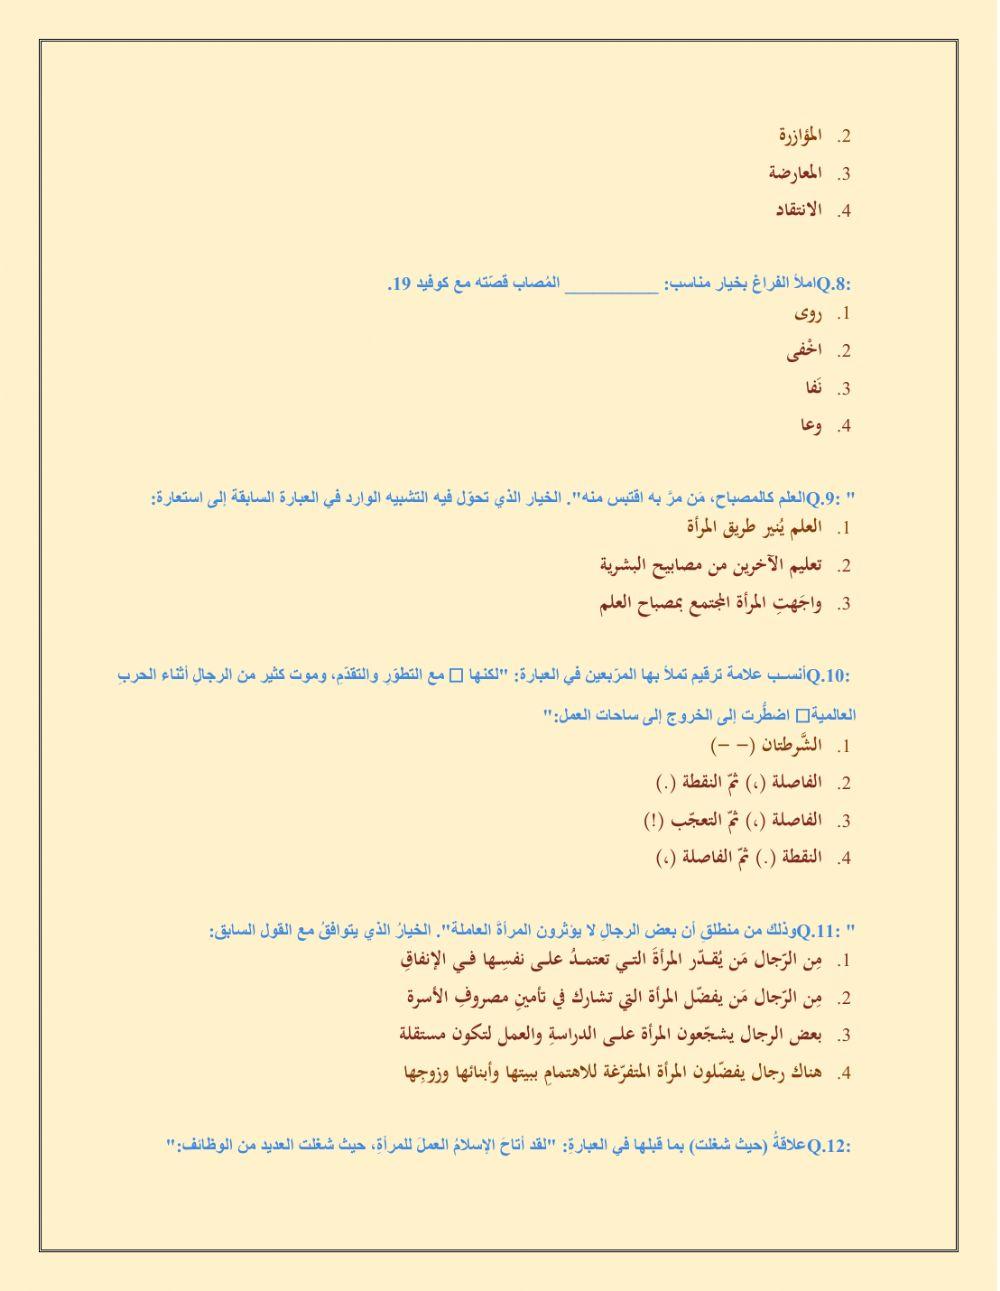 2. المؤازرة
3. المعارضة
4. الانتقاد
Q.8: املأ الفراغ بخيار مناسب: __________ المُصاب قصّته مع كوفيد 19.
1. روى
2. اخْفى
3. نَفا
4. وعا
Q.9: "العلم كالمصباح، مَن مرَّ به اقتبس منه". الخيار الذي تحوّل فيه التشبيه الوارد في العبارة السابقة إلى استعارة:
1. العلم يُنير طريق المرأة
2. تعليم الآخرين من مصابيح البشرية
3. واجَهتِ المرأة المجتمع بمصباح العلم
Q.10: أنسب علامة ترقيم تملأ بها المرَبعين في العبارة: "لكنها □ مع التطوّرِ والتقدّمِ، وموت كثير من الرجالِ أثناء الحربِ
العالمية□ اضطُّرت إلى الخروج إلى ساحات العمل:"
1. الشَّرطتان (– –)
2. الفاصلة (،) ثمّ النقطة (.)
3. الفاصلة (،) ثمّ التعجّب (!)
4. النقطة (.) ثمّ الفاصلة (،)
Q.11: "وذلك من منطلقِ أن بعض الرجالِ لا يؤثرون المرأةَ العاملة". الخيارُ الذي يتوافقُ مع القول السابق:
1. مِن الرّجال مَن يُقـدّر المرأةَ التـي تعتمـدُ علـى نفسِـها فـي الإنفاقِ
2. مِن الرّجال مَن يفضّل المرأة التي تشارك في تأمينِ مصروفِ الأسرة
3. بعض الرجال يشجّعون المرأة علـى الدراسةِ والعمل لتكون مستقلة
4. هناك رجال يفضّلون المرأة المتفرّغة للاهتمامِ ببيتها وأبنائها وزوجِها
Q.12: علاقةُ (حيث شغلت) بما قبلها في العبارةِ: "لقد أتاحَ الإسلامُ العملَ للمرأةِ، حيث شغلت العديد من الوظائف:"